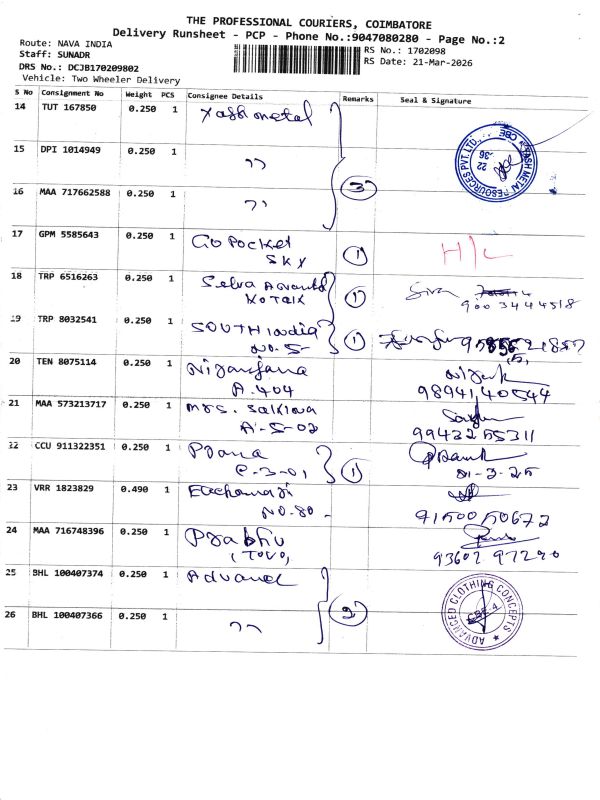 THE PROFESSIONAL COURIERS, COIMBATORE
Delivery Runsheet - PCP - Phone No.:9047080280 - Page No.:2
Route: NAVA INDIA
Staff: SUNADR
DRS No.: DCJB170209802
Vehicle: Two Wheeler Delivery
RS No.: 1702098
RS Date: 21-Mar-2026
S No Consignment No Weight PCS Consignee Details Remarks Seal & Signature
14 TUT 167850 0.250 1 Yashmetal
15 DPI 1014949 0.250 1 ״
16 MAA 717662588 0.250 1 ״ 3
17 GPM 5585643 0.250 1 Go Pocket
SKY 1 H/C
18 TRP 6516263 0.250 1 Selva Anand
KOTAK 1 Siva
900 3444518
19 TRP 8032541 0.250 1 South India
NO. 5- 1
20 TEN 8075114 0.250 1 Niranjana
A.404 98941 40544
21 MAA 573213717 0.250 1 Mrs. Sakina
A-5-02 99432 55311
22 CCU 911322351 0.250 1
C-3-01 1
23 VRR 1823829 0.490 1
NO.80- 91500 50672
24 MAA 716748396 0.250 1 Prabhu
(TOTO) 93602 97290
25 BHL 100407374 0.250 1 Advance
26 BHL 100407366 0.250 1 ״ 2
YASH METAL RESOURCES PVT.LTD. CBE 36
ADVANCED CLOTHING CONCEPTS CBE 4